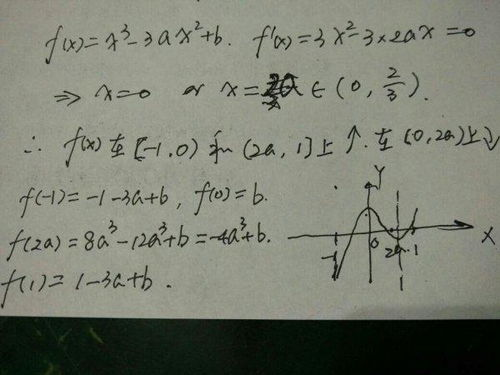 f(x)=x³-3ax²+b. f'(x)=3x²-3×2ax=0
⇒ x=0 or x= ∈(0, 2/3).
∴ f(x)在[-1,0)和(2a,1]上↑.在(0,2a)上↓
f(-1)=-1-3a+b, f(0)=b.
f(2a)=8a³-12a³+b=-4a³+b.
f(1)=1-3a+b.
Y
-1 0 2a 1
X